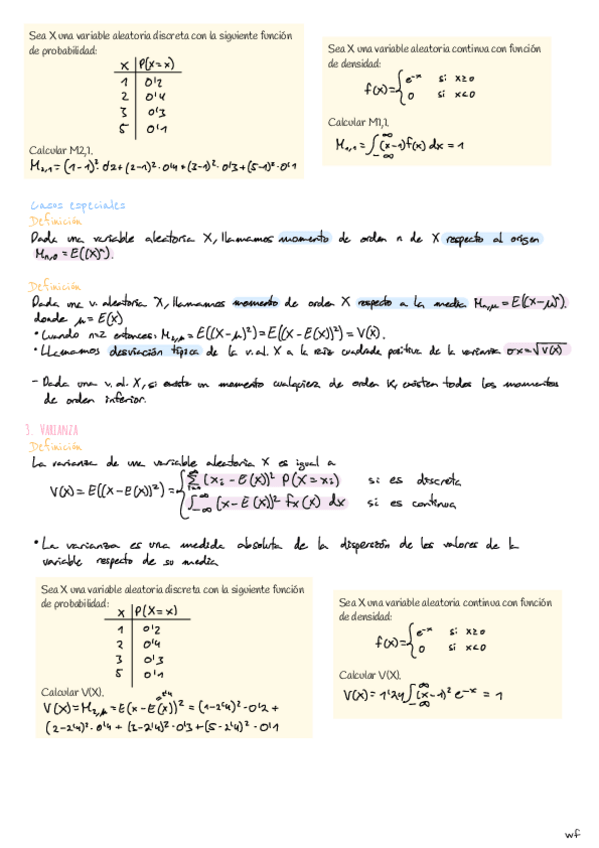 Sea X una variable aleatoria discreta con la siguiente función
de probabilidad:
x | P(X=x)
1 | 0'2
2 | 0'4
3 | 0'3
5 | 0'1
Calcular M2,1.
M₂,₁ = (1-1)²· 0'2 + (2-1)²· 0'4 + (3-1)²· 0'3 + (5-1)²· 0'1
Sea X una variable aleatoria continua con función
de densidad:
f(x) = { e^-x si x≥0
0 si x<0
Calcular M1,1.
M₁,₁ = ∫_-∞^∞ (x-1) f(x) dx = 1
Casos especiales
Definición
Dada una variable aleatoria X, llamamos momento de orden n de X respecto al origen
Mn,0 = E((X)^n).
Definición
Dada una v. aleatoria X, llamamos momento de orden X respecto a la media Mn,μ = E((X-μ)^n).
donde μ = E(X)
• Cuando n=2 entonces: M₂,μ = E((X-μ)²) = E((X-E(X))²) = V(X).
• Llamamos desviación típica de la v.al. X a la raíz cuadrada positiva de la varianza σx = √V(X)
- Dada una v. al. X, si existe un momento cualquiera de orden K, existen todos los momentos
de orden inferior.
3. VARIANZA
Definición
La varianza de una variable aleatoria X es igual a
V(X) = E((X-E(X))²) = { Σ_i=1^∞ (xi - E(X))² P(X=xi) si es discreta
∫_-∞^∞ (x-E(X))² fx(x) dx si es continua
• La varianza es una medida absoluta de la dispersión de los valores de la
variable respecto de su media
Sea X una variable aleatoria discreta con la siguiente función
de probabilidad:
x | P(X=x)
1 | 0'2
2 | 0'4
3 | 0'3
5 | 0'1
Calcular V(X).
V(X) = M₂,μ = E(x-E(X))² = (1-2'4)²· 0'2 +
(2-2'4)²· 0'4 + (3-2'4)²· 0'3 + (5-2'4)²· 0'1
Sea X una variable aleatoria continua con función
de densidad:
f(x) = { e^-x si x≥0
0 si x<0
Calcular V(X).
V(X) = 1'24 ∫_-∞^∞ (x-1)² e^-x = 1
wf